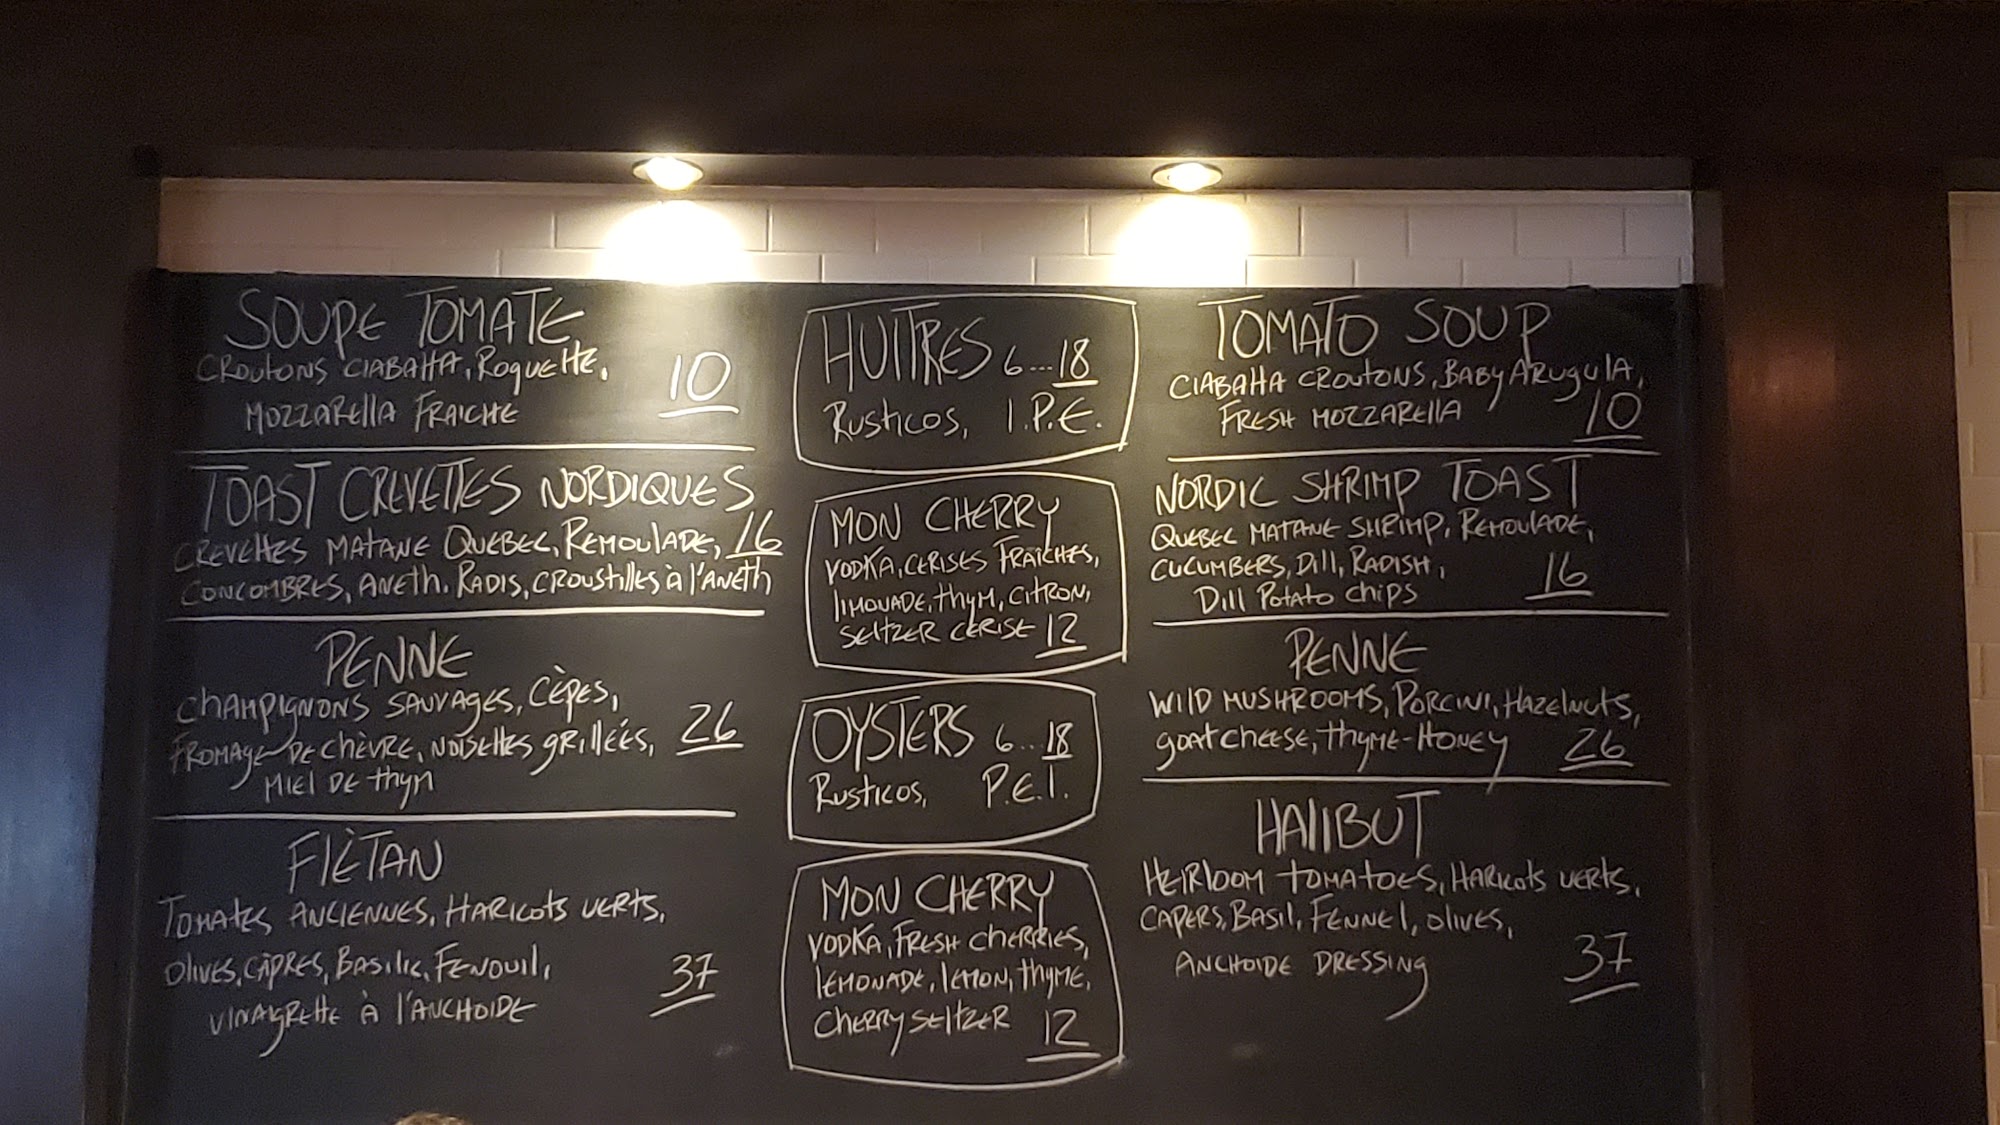 SOUPE TOMATE
CROUTONS CIABATTA, ROQUETTE,
MOZZARELLA FRAICHE 10
TOAST CREVETTES NORDIQUES
CREVETTES MATANE QUEBEC, REMOULADE, 16
CONCOMBRES, ANETH. RADIS, CROUSTILLES à L'ANETH
PENNE
CHAMPIGNONS SAUVAGES, CÈPES,
FROMAGE DE CHÈVRE, NOISETTES GRILLÉES, 26
MIEL DE THYM
FLÈTAN
TOMATES ANCIENNES, HARICOTS VERTS,
OLIVES, CÂPRES, BASILIC, FENOUIL, 37
VINAIGRETTE À L'ANCHOIDE
HUITRES 6...18
RUSTICOS, I.P.E.
MON CHERRY
VODKA, CERISES FRAÎCHES,
LIMONADE, THYM, CITRON,
SELTZER CERISE 12
OYSTERS 6...18
RUSTICOS, P.E.I.
MON CHERRY
VODKA, FRESH CHERRIES,
LEMONADE, LEMON, THYME,
CHERRY SELTZER 12
TOMATO SOUP
CIABATTA CROUTONS, BABY ARUGULA,
FRESH MOZZARELLA 10
NORDIC SHRIMP TOAST
QUEBEC MATANE SHRIMP, REMOULADE,
CUCUMBERS, DILL, RADISH, 16
DILL POTATO CHIPS
PENNE
WILD MUSHROOMS, PORCINI, HAZELNUTS,
GOAT CHEESE, THYME-HONEY 26
HALIBUT
HEIRLOOM TOMATOES, HARICOTS VERTS,
CAPERS, BASIL, FENNEL, OLIVES,
ANCHOIDE DRESSING 37